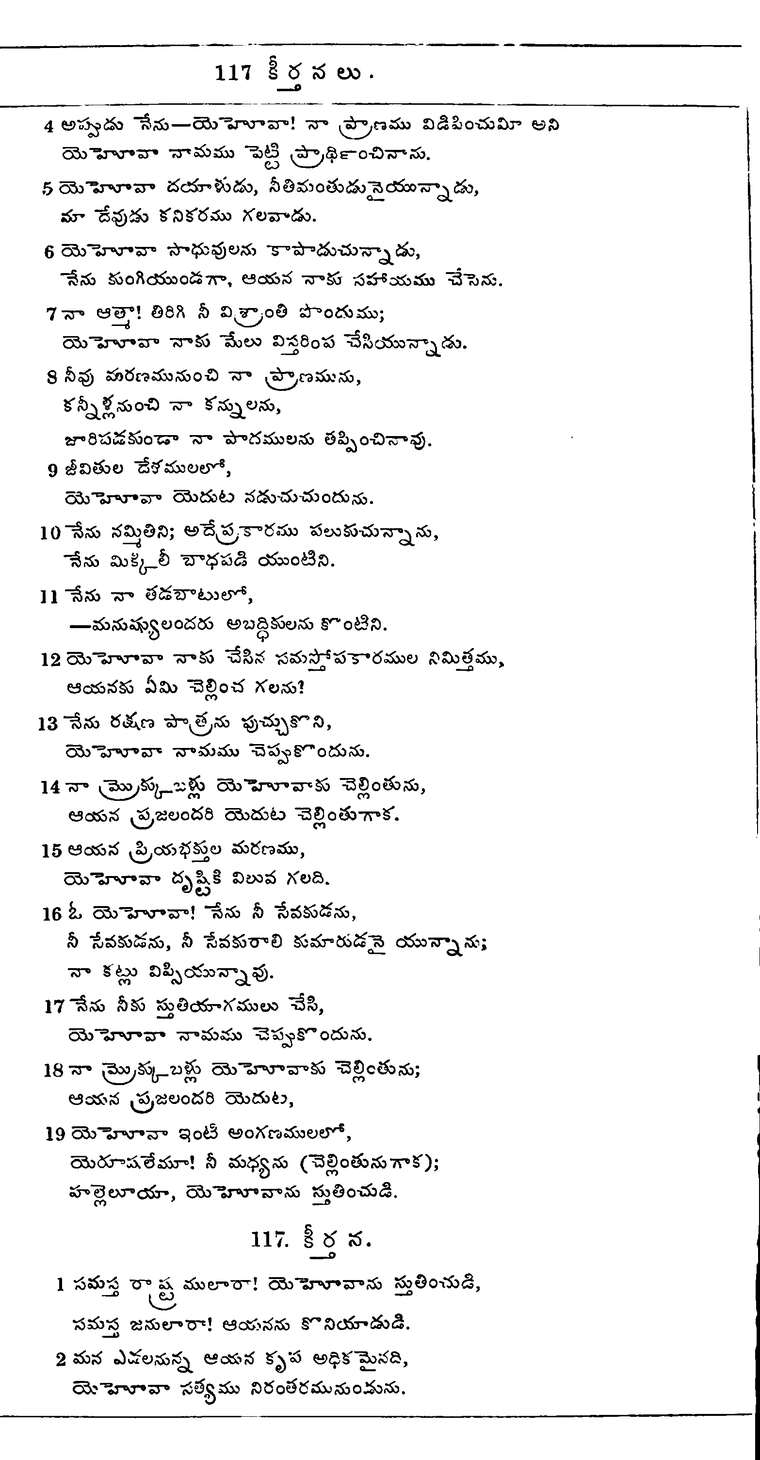 117 కీర్తనలు.
4 అప్పుడు నేను—యెహోవా! నా ప్రాణము విడిపించుమీ అని
యెహోవా నామము పెట్టి ప్రార్థించినాను.
5 యెహోవా దయాళుడు, నీతిమంతుడునైయున్నాడు,
మా దేవుడు కనికరము గలవాడు.
6 యెహోవా సాధువులను కాపాడుచున్నాడు,
నేను కుంగియుండగా, ఆయన నాకు సహాయము చేసెను.
7 నా ఆత్మా! తిరిగి నీ విశ్రాంతి పొందుము;
యెహోవా నాకు మేలు విస్తరింప చేసియున్నాడు.
8 నీవు మరణమునుంచి నా ప్రాణమును,
కన్నీళ్లనుంచి నా కన్నులను,
జారిపడకుండా నా పాదములను తప్పించినావు.
9 జీవితుల దేశములలో,
యెహోవా యెదుట నడుచుచుందును.
10 నేను నమ్మితిని; అదేప్రకారము పలుకుచున్నాను,
నేను మిక్కిలీ బాధపడి యుంటిని.
11 నేను నా తడబాటులో,
—మనుష్యులందరు అబద్ధికులను కొంటిని.
12 యెహోవా నాకు చేసిన సమస్తోపకారముల నిమిత్తము,
ఆయనకు ఏమి చెల్లించ గలను?
13 నేను రక్షణ పాత్రను పుచ్చుకొని,
యెహోవా నామము చెప్పుకొందును.
14 నా మ్రొక్కుబళ్లు యెహోవాకు చెల్లింతును,
ఆయన ప్రజలందరి యెదుట చెల్లింతుగాక.
15 ఆయన ప్రియభక్తుల మరణము,
యెహోవా దృష్టికి విలువ గలది.
16 ఓ యెహోవా! నేను నీ సేవకుడను,
నీ సేవకుడను, నీ సేవకురాలి కుమారుడనై యున్నాను;
నా కట్లు విప్పియున్నావు.
17 నేను నీకు స్తుతియాగములు చేసి,
యెహోవా నామము చెప్పుకొందును.
18 నా మ్రొక్కుబళ్లు యెహోవాకు చెల్లింతును;
ఆయన ప్రజలందరి యెదుట,
19 యెహోవా ఇంటి అంగణములలో,
యెరూషలేమూ! నీ మధ్యను (చెల్లింతునుగాక);
హల్లెలూయా, యెహోవాను స్తుతించుడి.
117. కీర్తన.
1 సమస్త రాష్ట్రములారా! యెహోవాను స్తుతించుడి,
సమస్త జనులారా! ఆయనను కొనియాడుడి.
2 మన ఎడలనున్న ఆయన కృప అధికమైనది,
యెహోవా సత్యము నిరంతరమునుండును.